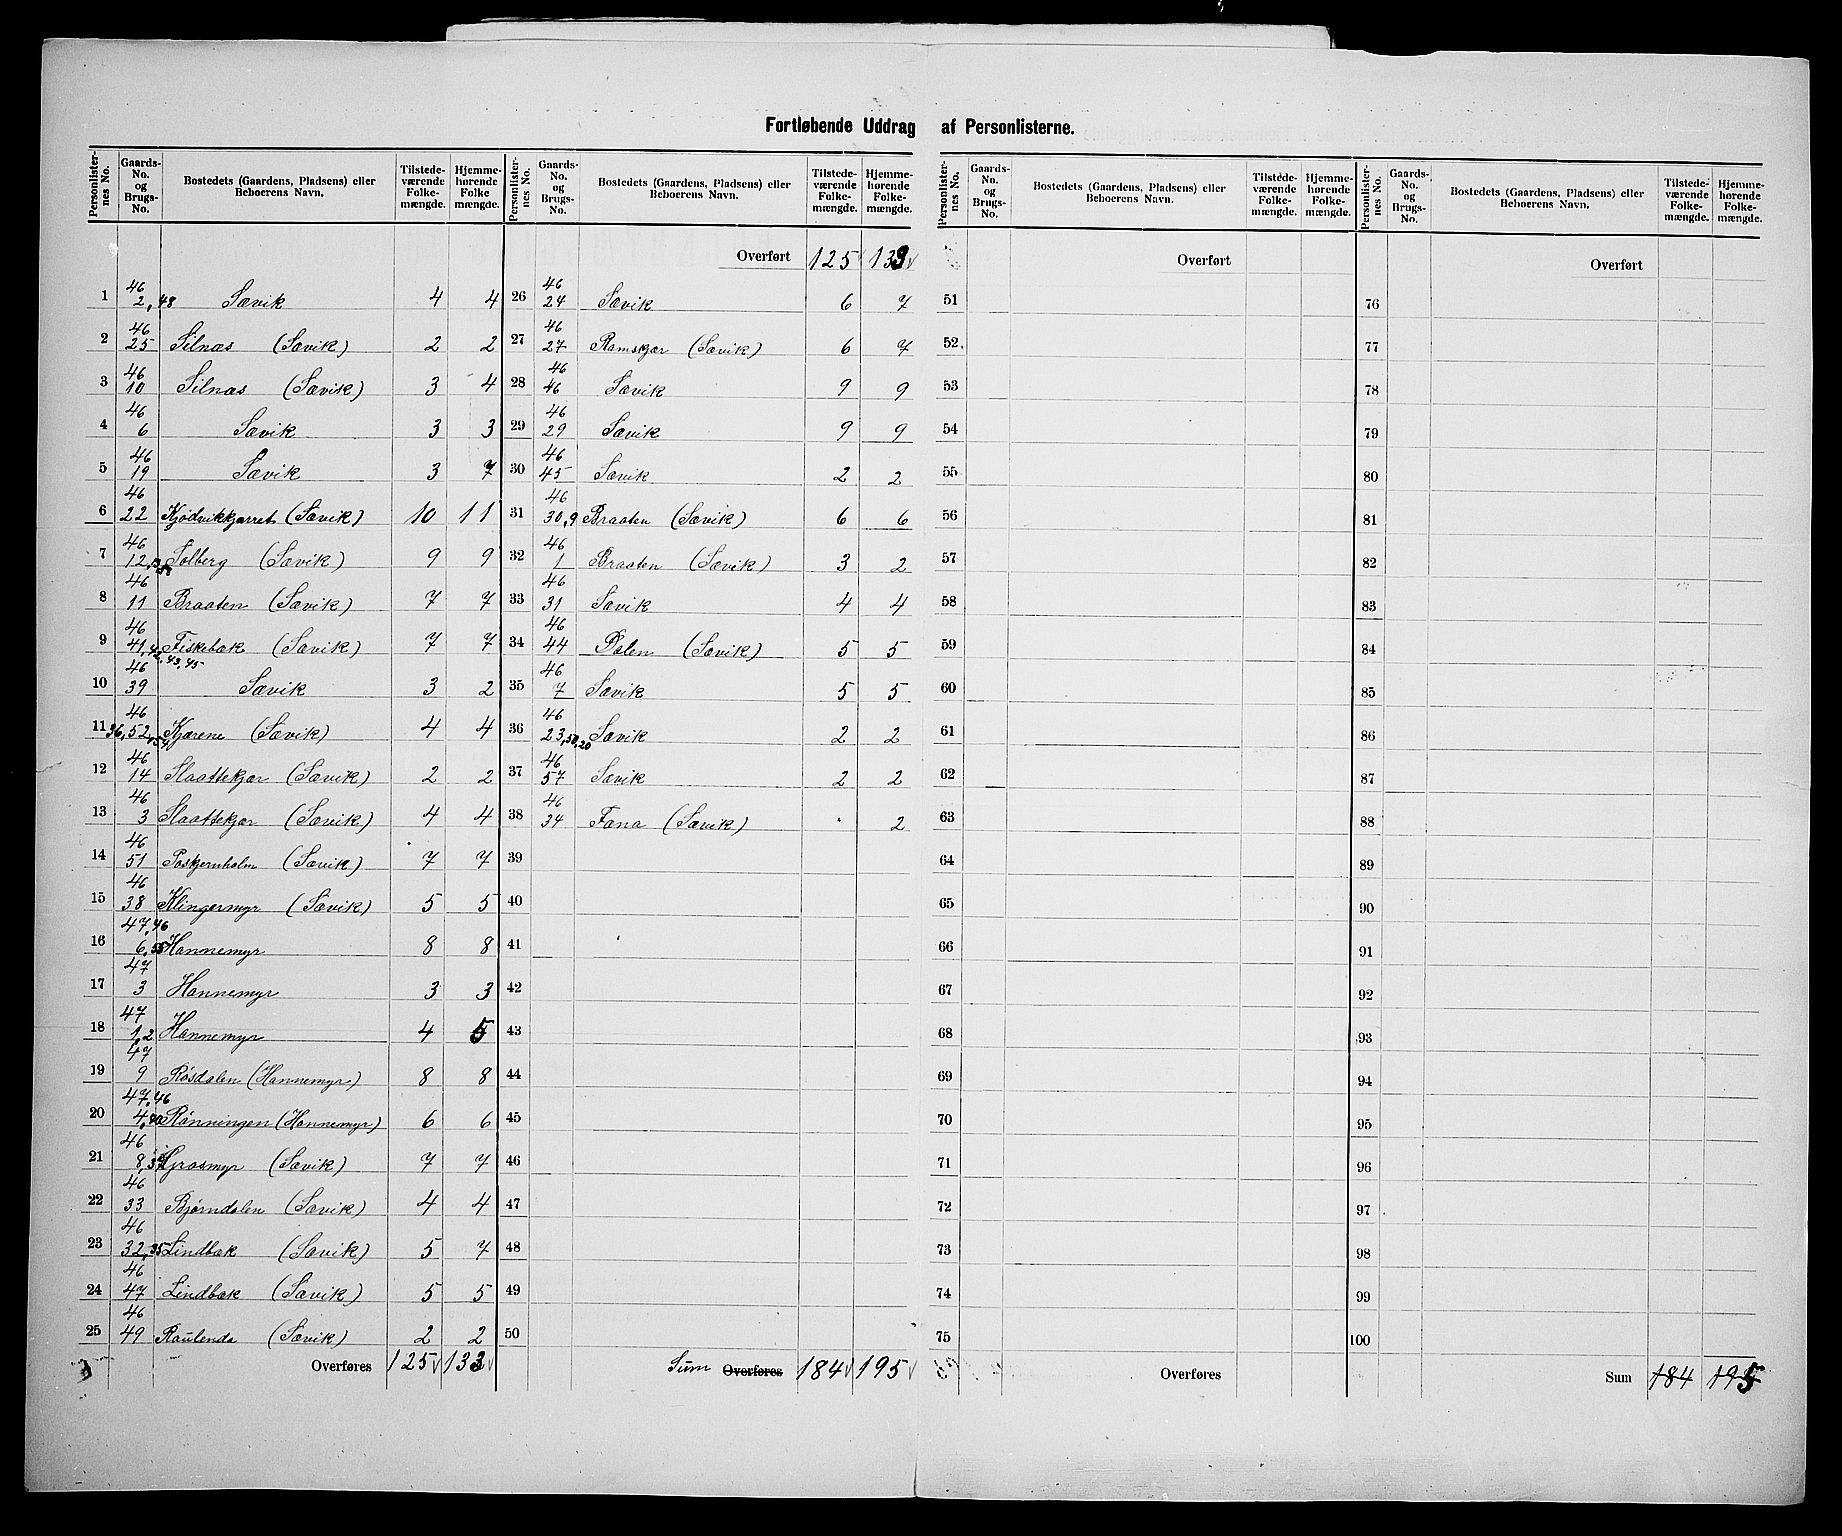 Fortløbende Uddrag af Personlisterne.
Personlister-nes No. | Gaards-No. og Brugs-No. | Bostedets (Gaardens, Pladsens) eller Beboerens Navn. | Tilstede-værende Folke-mængde. | Hjemme-hørende Folke-mængde.
1 | 46 2,48 | Sævik | 4 | 4
2 | 46 25 | Silnæs (Sævik) | 2 | 2
3 | 46 10 | Silnæs (Sævik) | 3 | 4
4 | 46 6 | Sævik | 3 | 3
5 | 46 19 | Sævik | 3 | 7
6 | 46 22 | Kjødvikkjærret (Sævik) | 10 | 11
7 | 46 12 | Solberg (Sævik) | 9 | 9
8 | 46 11 | Braaten (Sævik) | 7 | 7
9 | 46 41,42,43,45 | Fiskebæk (Sævik) | 7 | 7
10 | 46 39 | Sævik | 3 | 2
11 | 46 36,52,54 | Kjærene (Sævik) | 4 | 4
12 | 46 14 | Slaattekjær (Sævik) | 2 | 2
13 | 46 3 | Slaattekjær (Sævik) | 4 | 4
14 | 46 51 | (Sævik) | 7 | 7
15 | 46 38 | Klingermyr (Sævik) | 5 | 5
16 | 47,46 6,55 | Hannemyr | 8 | 8
17 | 47 3 | Hannemyr | 3 | 3
18 | 47 1,2 | Hannemyr | 4 | 5
19 | 47 9 | Røsdalen (Hannemyr) | 8 | 8
20 | 47,46 4,40 | Rønningen (Hannemyr) | 6 | 6
21 | 46 8 | Græsmyr (Sævik) | 7 | 7
22 | 46 33 | Bjørndalen (Sævik) | 4 | 4
23 | 46 32,35 | Lindbæk (Sævik) | 5 | 7
24 | 46 47 | Lindbæk (Sævik) | 5 | 5
25 | 46 49 | Raulenda (Sævik) | 2 | 2
Overføres 125 133
Personlister-nes No. | Gaards-No. og Brugs-No. | Bostedets (Gaardens, Pladsens) eller Beboerens Navn. | Tilstede-værende Folke-mængde. | Hjemme-hørende Folke-mængde.
Overført 125 133
26 | 46 24 | Sævik | 6 | 7
27 | 46 27 | Ramskjær (Sævik) | 6 | 7
28 | 46 46 | Sævik | 9 | 9
29 | 46 29 | Sævik | 9 | 9
30 | 46 45 | Sævik | 2 | 2
31 | 46 30,9 | Braaten (Sævik) | 6 | 6
32 | 46 1 | Braaten (Sævik) | 3 | 2
33 | 46 31 | Sævik | 4 | 4
34 | 46 44 | Dalen (Sævik) | 5 | 5
35 | 46 7 | Sævik | 5 | 5
36 | 46 23,50,20 | Sævik | 2 | 2
37 | 46 57 | Sævik | 2 | 2
38 | 46 34 | Fana (Sævik) | . | 2
39
40
41
42
43
44
45
46
47
48
49
50
Sum Overføres 184 195
Personlister-nes No. | Gaards-No. og Brugs-No. | Bostedets (Gaardens, Pladsens) eller Beboerens Navn. | Tilstede-værende Folke-mængde. | Hjemme-hørende Folke-mængde.
Overført
51
52
53
54
55
56
57
58
59
60
61
62
63
64
65
66
67
68
69
70
71
72
73
74
75
Overføres
Personlister-nes No. | Gaards-No. og Brugs-No. | Bostedets (Gaardens, Pladsens) eller Beboerens Navn. | Tilstede-værende Folke-mængde. | Hjemme-hørende Folke-mængde.
Overført
76
77
78
79
80
81
82
83
84
85
86
87
88
89
90
91
92
93
94
95
96
97
98
99
100
Sum 184 195